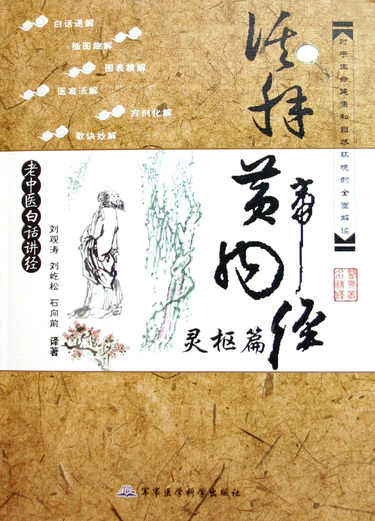 白话通解
插图趣解
图表精解
医案活解
方剂化解
歌诀妙解
对于生命健康和自然环境的全面解读
黄帝内经
灵枢篇
老中医白话讲经
刘观涛 刘屹松 石向前 译著
军事医学科学出版社